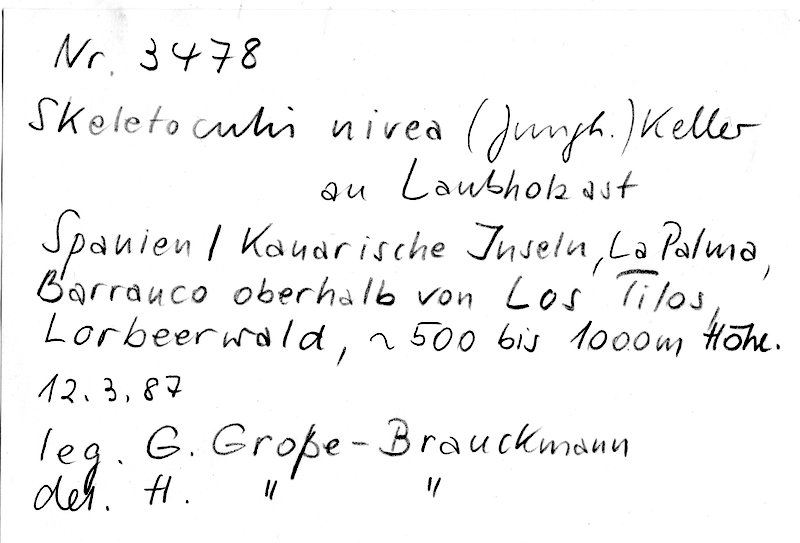 Nr. 3478
Skeletocutis nivea (Jungh.) Keller
an Laubholzast
Spanien / Kanarische Inseln, La Palma,
Barranco oberhalb von Los Tilos,
Lorbeerwald, ~ 500 bis 1000m Höhe.
12.3.87
leg. G. Große-Brauckmann
det. H. " "